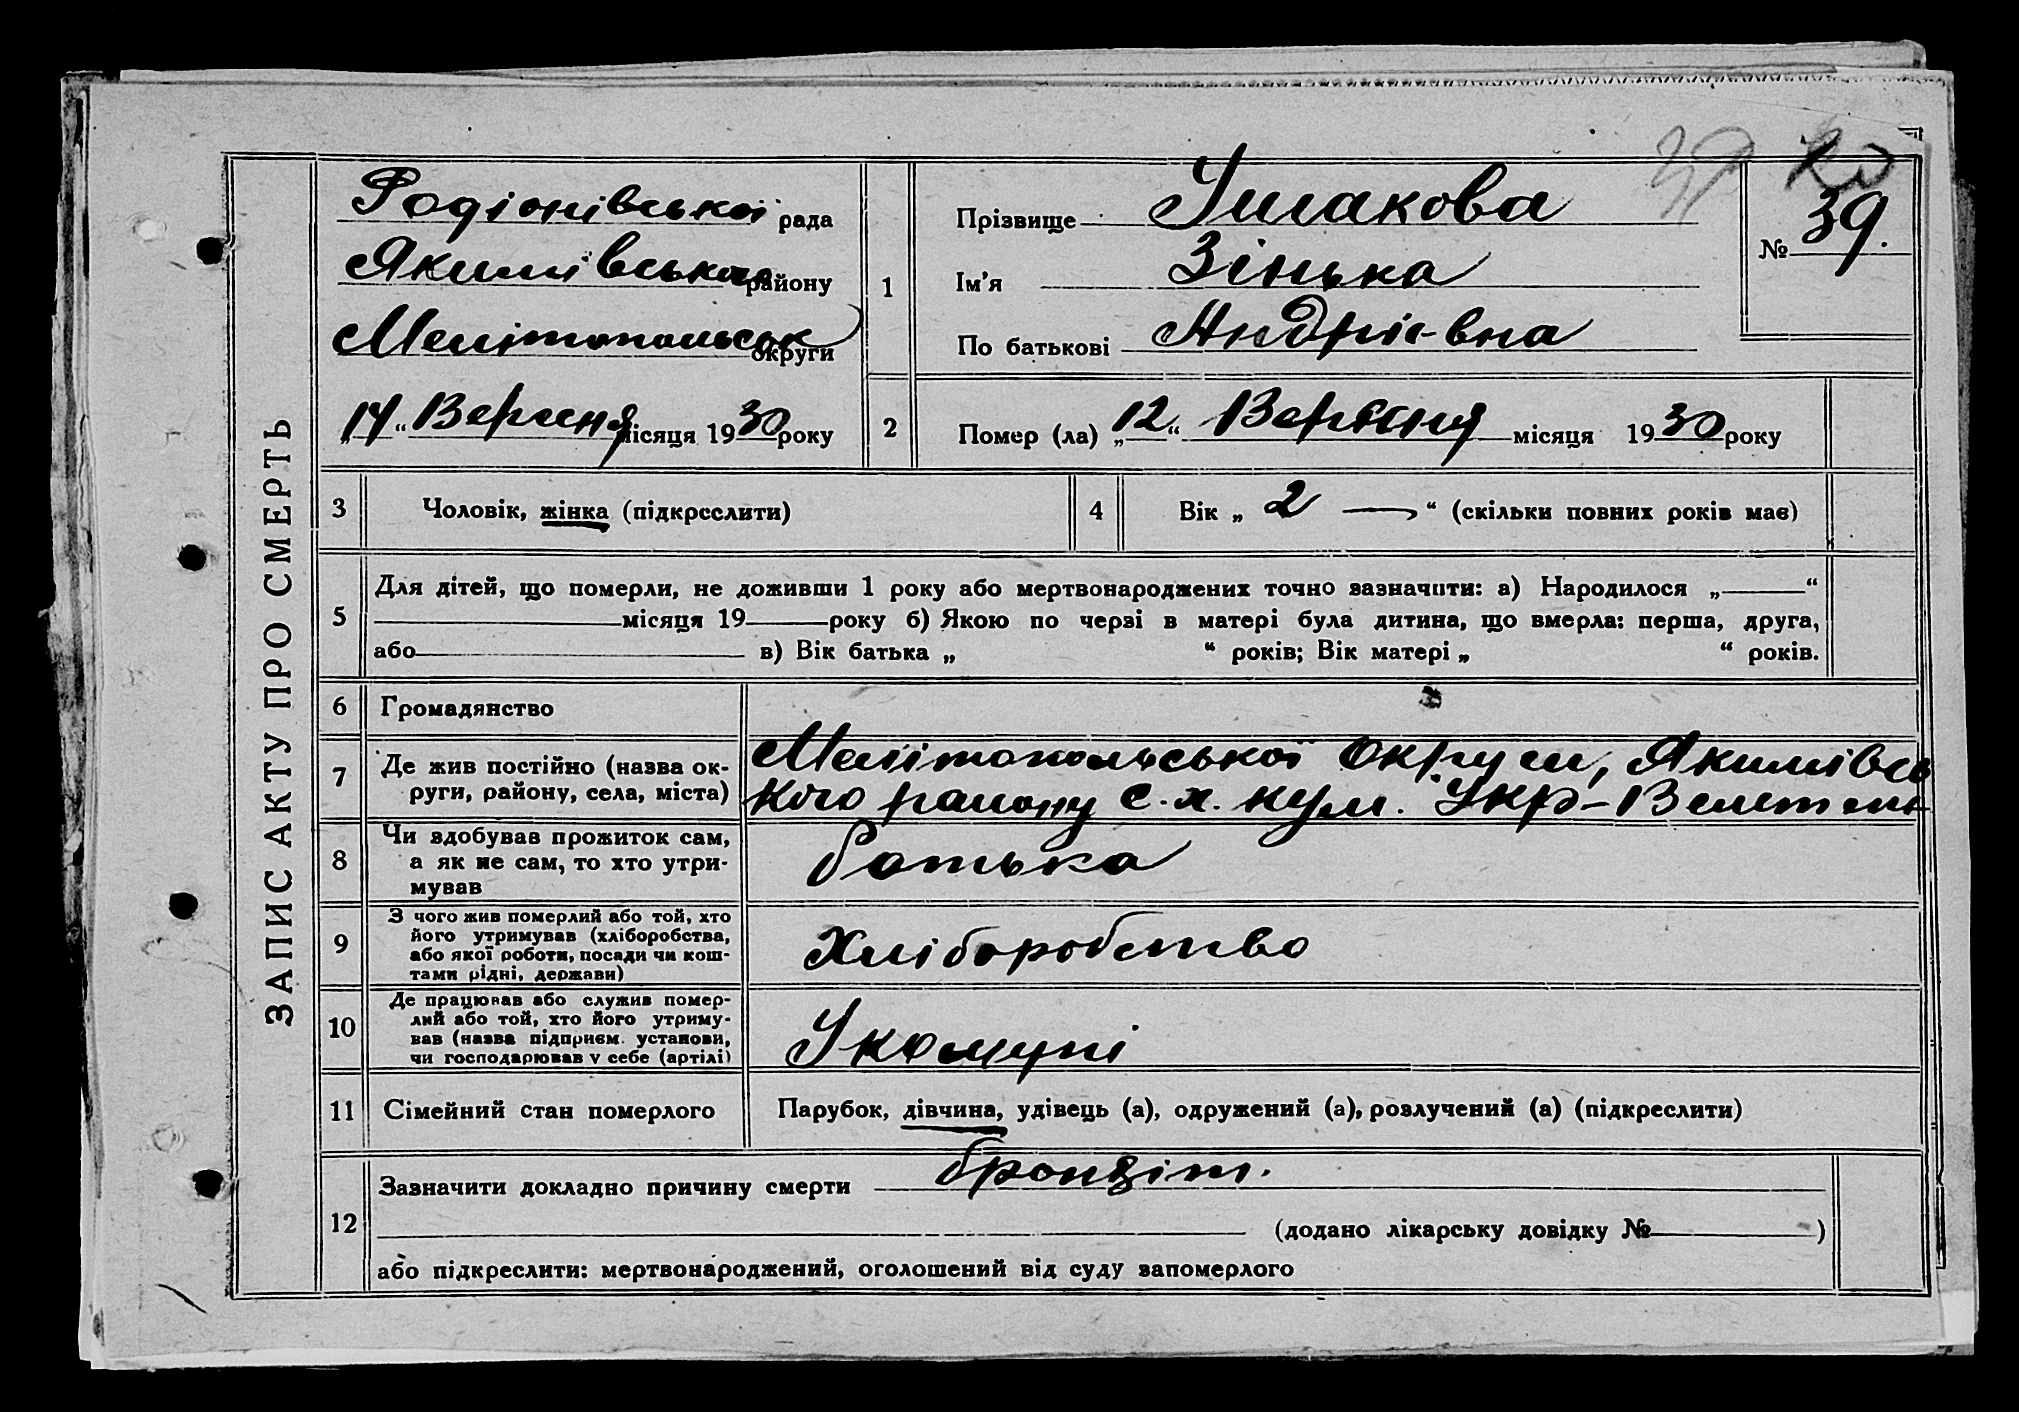 ЗАПИС АКТУ ПРО СМЕРТЬ
Родіонівської рада
Якимівського району
Мелітопольськ округи
„14“ Вересня місяця 1930 року
1
Прізвище Ушакова
Ім'я Зінька
По батькові Андріївна
№ 39.
2
Помер (ла) „12“ Вересня місяця 1930 року
3 Чоловік, жінка (підкреслити)
4 Вік „2 —“ (скільки повних років має)
5 Для дітей, що померли, не доживши 1 року або мертвонароджених точно зазначити: а) Народилося „——“
місяця 19 року б) Якою по черзі в матері була дитина, що вмерла: перша, друга,
або в) Вік батька „ “ років; Вік матері „ “ років.
6 Громадянство
7 Де жив постійно (назва ок-
руги, району, села, міста)
Мелітопольської Округи, Якимівсь
кого району с.х. кум. Укр-
8 Чи здобував прожиток сам,
а як не сам, то хто утри-
мував
батька
9 З чого жив померлий або той, хто
його утримував (хліборобства,
або якої роботи, посади чи кош-
тами рідні, держави)
Хліборобство
10 Де працював або служив помер-
лий або той, хто його утриму-
вав (назва підприєм. установи,
чи господарював у себе (артілі)
Укомуні
11 Сімейний стан померлого
Парубок, дівчина, удівець (а), одружений (а), розлучений (а) (підкреслити)
12 Зазначити докладно причину смерти бронхіт.
(додано лікарську довідку № )
або підкреслити: мертвонароджений, оголошений від суду запомерлого